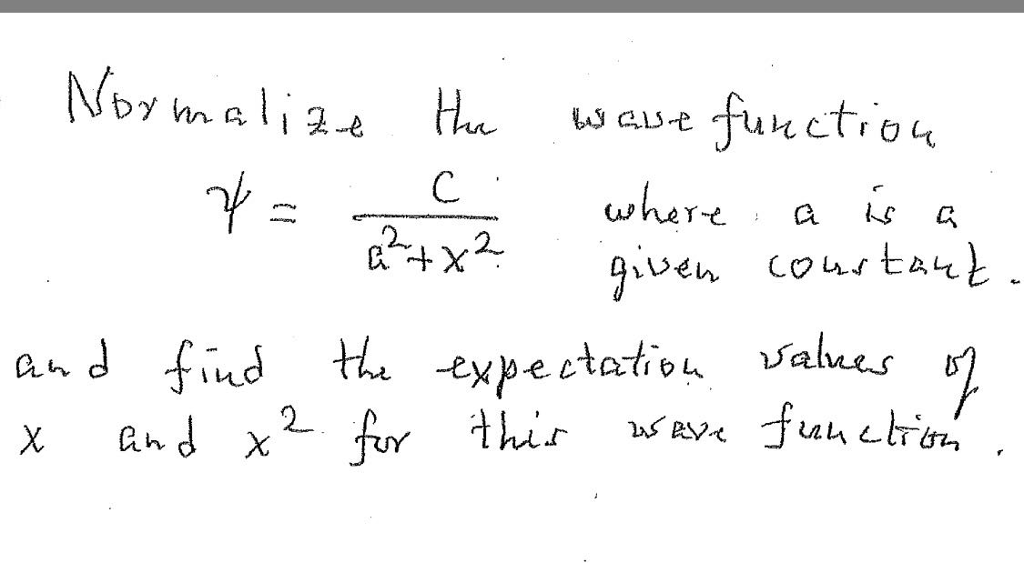 Normalize the wave function
ψ = C / a²+x² where a is a
given constant.
and find the expectation values of
x and x² for this wave function.